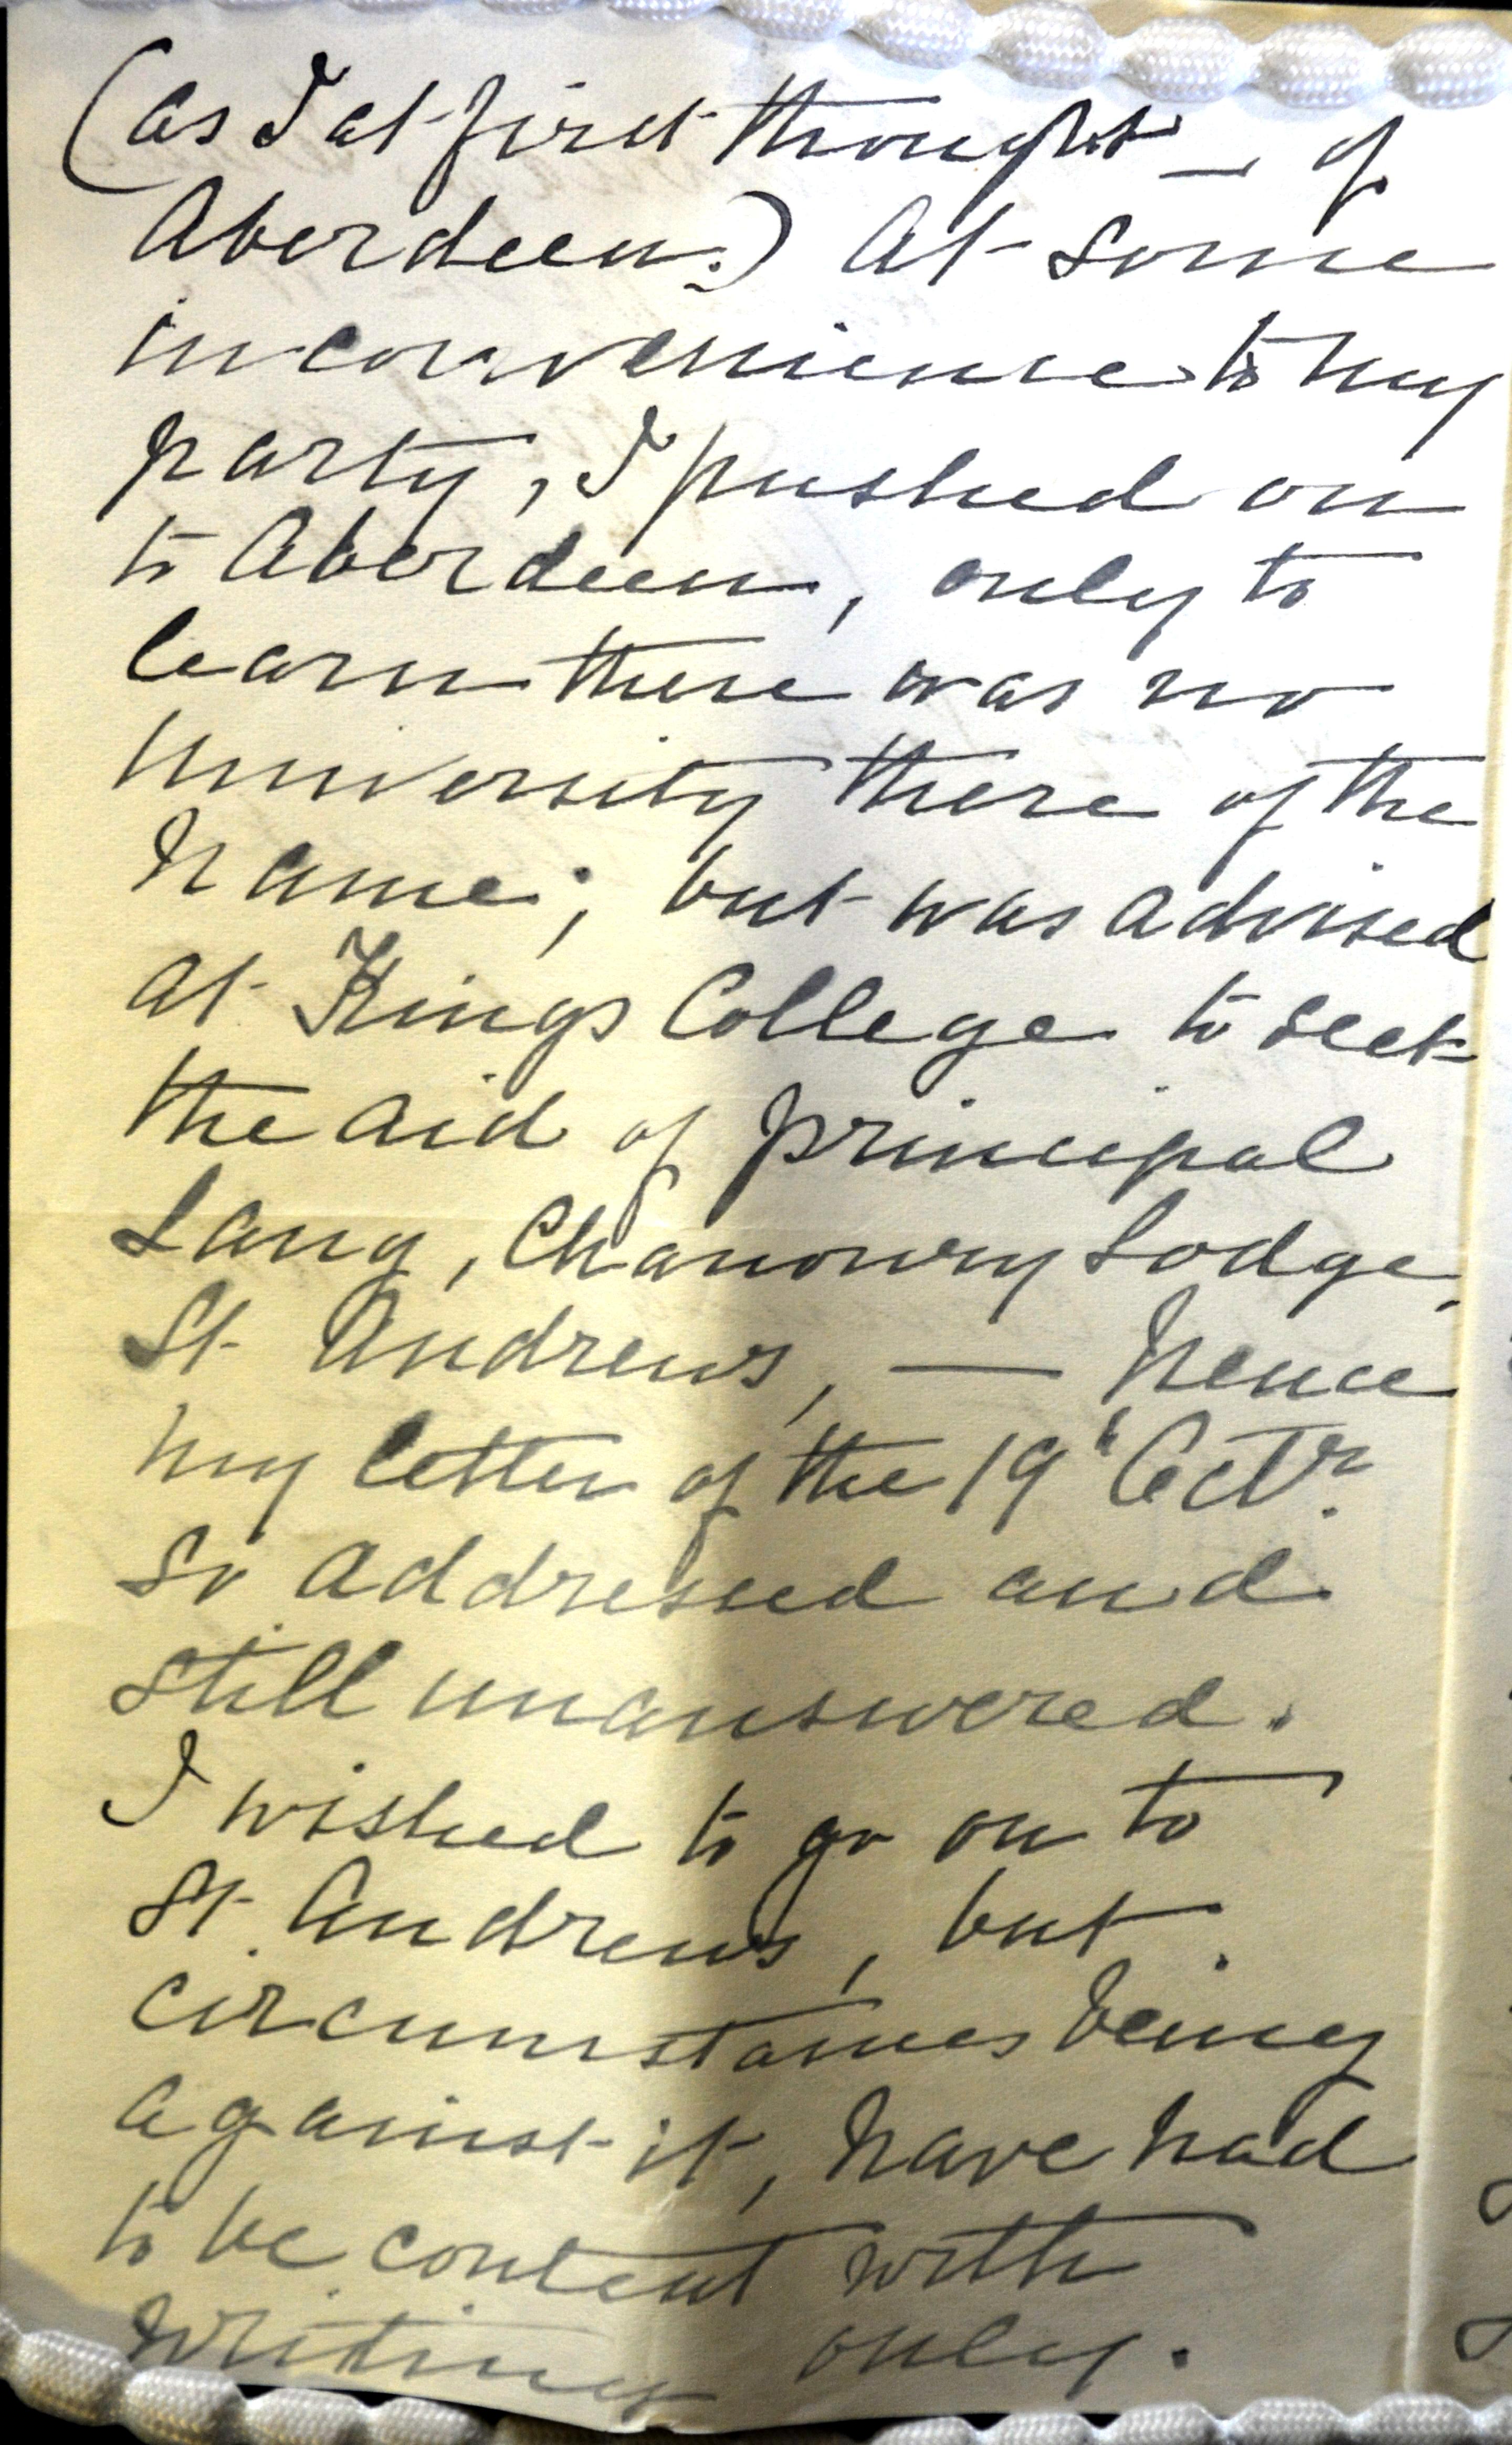 (as I at first thought — of
Aberdeen.) At some
inconvenience to my
party, I pushed on
to Aberdeen, only to
learn there was no
University there of the
name; but was advised
at Kings College to seek
the aid of Principal
Lang, Chanonry Lodge,
St Andrews, — hence
my letter of the 19th Octr.
so addressed and
still unanswered.
I wished to go on to
St. Andrews, but
circumstances being
against it, have had
to be content with
writing only.